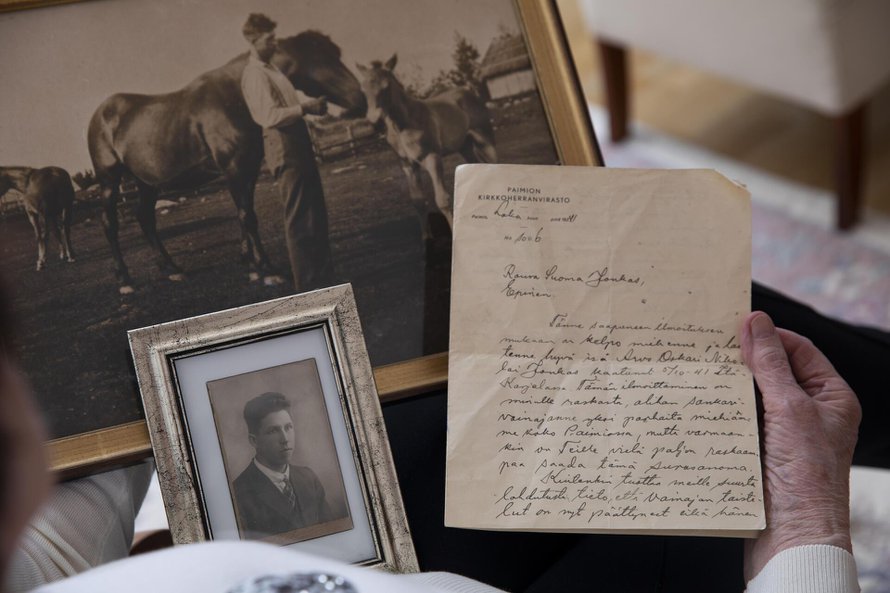 PAIMION
KIRKKOHERRANVIRASTO
Paimio, Loka kuun 1941
N:o 1006
Rouva Suoma Jonkas,
Tänne saapuneen ilmoituksen
mukaan on kelpo miehenne ja las
tenne hyvä isä Arvo Oskari Niko
lai Jonkas kaatunut 5/10-41 Itä-
Karjalassa. Tämän ilmoittaminen on
minulle raskasta, olihan sankari-
vainajanne yksi parhaita miehiäm
me koko Paimiossa, mutta varmaan-
kin on Teille vielä paljon raskaam
paa saada tämä surusanoma.
Kuitenkin tuottaa meille suurta
lohdutusta tieto, että vainajan taiste-
lut on nyt päättyneet eikä hänen